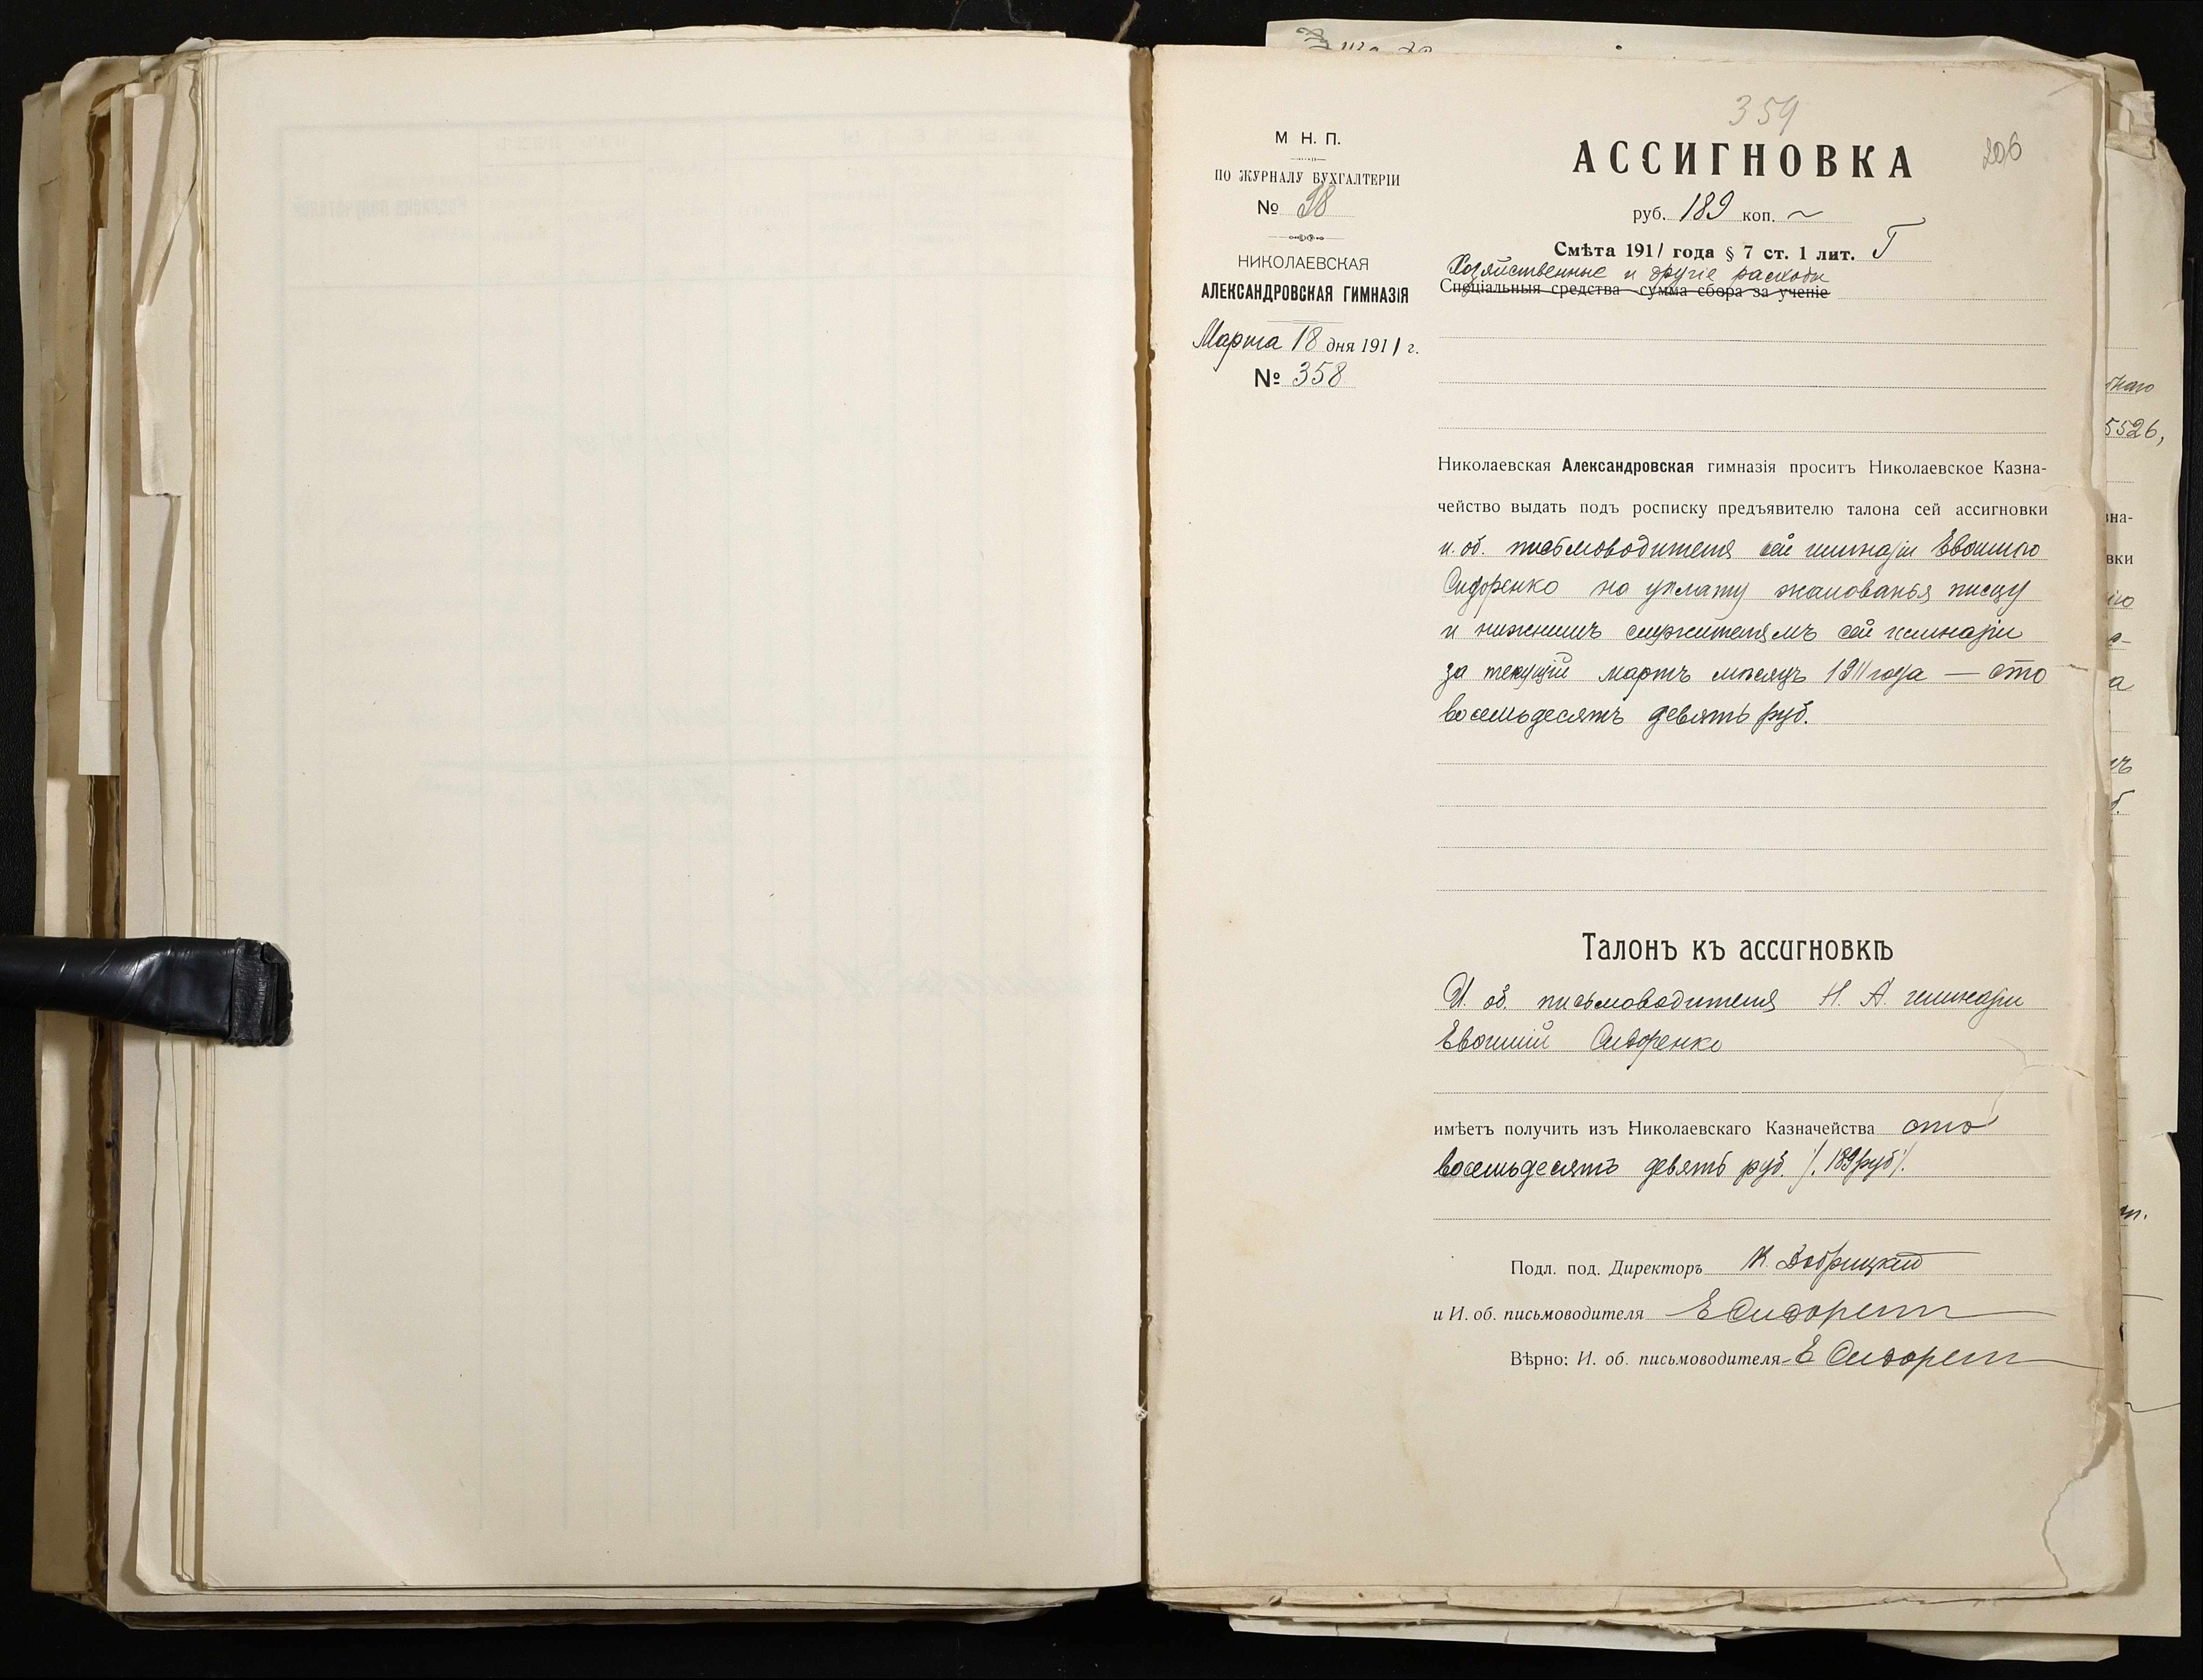 359
206
М. Н. П.
ПО ЖУРНАЛУ БУХГАЛТЕРІИ
№ 98
НИКОЛАЕВСКАЯ
АЛЕКСАНДРОВСКАЯ ГИМНАЗІЯ
Марта 18 дня 1911 г.
№ 358
АССИГНОВКА
руб. 189 коп. ~
Смѣта 1911 года § 7 ст. 1 лит. Г
Хозяйственные и другіе расходы
Спеціальныя средства - сумма сбора за ученіе
Николаевская Александровская гимназія проситъ Николаевское Казна-
чейство выдать подъ росписку предъявителю талона сей ассигновки
и. об. письмоводителя сей гимназіи Евфимію
Сидоренко на уплату жалованья писцу
и нижнимъ служителямъ сей гимназіи
за текущій мартъ мѣсяцъ 1911 года — сто
восемьдесятъ девять руб.
Талонъ къ ассигновкѣ
И. об. письмоводителя Н. А. гимназіи
Евфимій Сидоренко
имѣетъ получить изъ Николаевскаго Казначейства сто
восемьдесятъ девять руб. /. 189 руб ./.
Подл. под. Директоръ К. Добрицкій
и И. об. письмоводителя Е Сидоренко
Вѣрно: И. об. письмоводителя Е Сидоренко
5526,